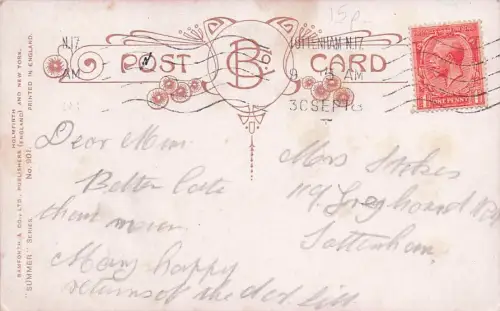 15p
N.17
AM
TOTTENHAM.N.17.
9 15 AM
30 SEP 18
POST B CARD
ONE PENNY
Dear Mum
Better late
than never
Many happy
returns of the day Lill
Mrs Stokes
119 Greyhound Rd
Tottenham
BAMFORTH & CO., LTD., PUBLISHERS (ENGLAND) AND NEW YORK.
HOLMFIRTH
"SUMMER" SERIES. No. 901. PRINTED IN ENGLAND.